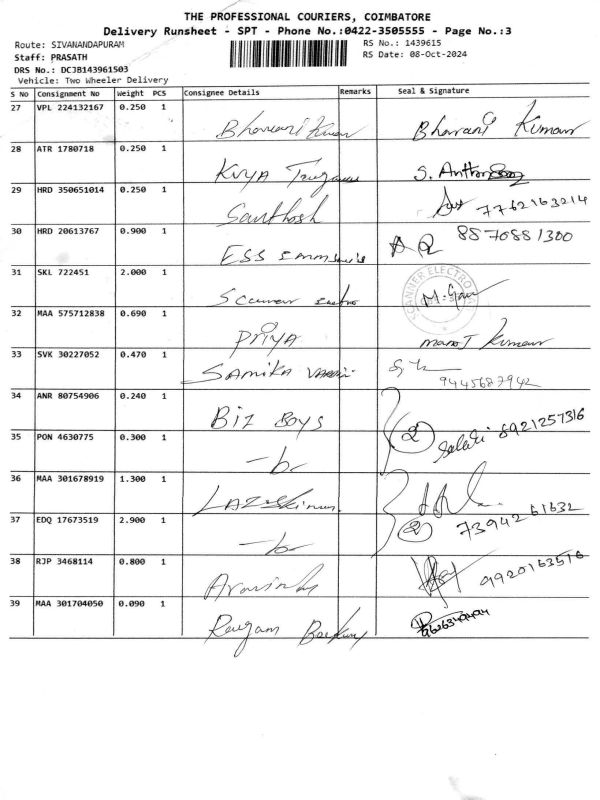 THE PROFESSIONAL COURIERS, COIMBATORE
Delivery Runsheet - SPT - Phone No.:0422-3505555 - Page No.:3
Route: SIVANANDAPURAM RS No.: 1439615
Staff: PRASATH RS Date: 08-Oct-2024
DRS No.: DCJB143961503
Vehicle: Two Wheeler Delivery
S No Consignment No Weight PCS Consignee Details Remarks Seal & Signature
27 VPL 224132167 0.250 1
Bhavani Kumar Bhavani Kumar
28 ATR 1780718 0.250 1
S.
29 HRD 350651014 0.250 1
Santhosh 7762163214
30 HRD 20613767 0.900 1
ESS 8870881300
31 SKL 722451 2.000 1
SCANNER ELECTRO
32 MAA 575712838 0.690 1
Priya Manoj Kumar
33 SVK 30227052 0.470 1
Samika 9445687942
34 ANR 80754906 0.240 1
Biz Boys
2 8921257316
35 PON 4630775 0.300 1
36 MAA 301678919 1.300 1
37 EDQ 17673519 2.900 1
2 7394261632
38 RJP 3468114 0.800 1
Aravindh 9920163516
39 MAA 301704050 0.090 1